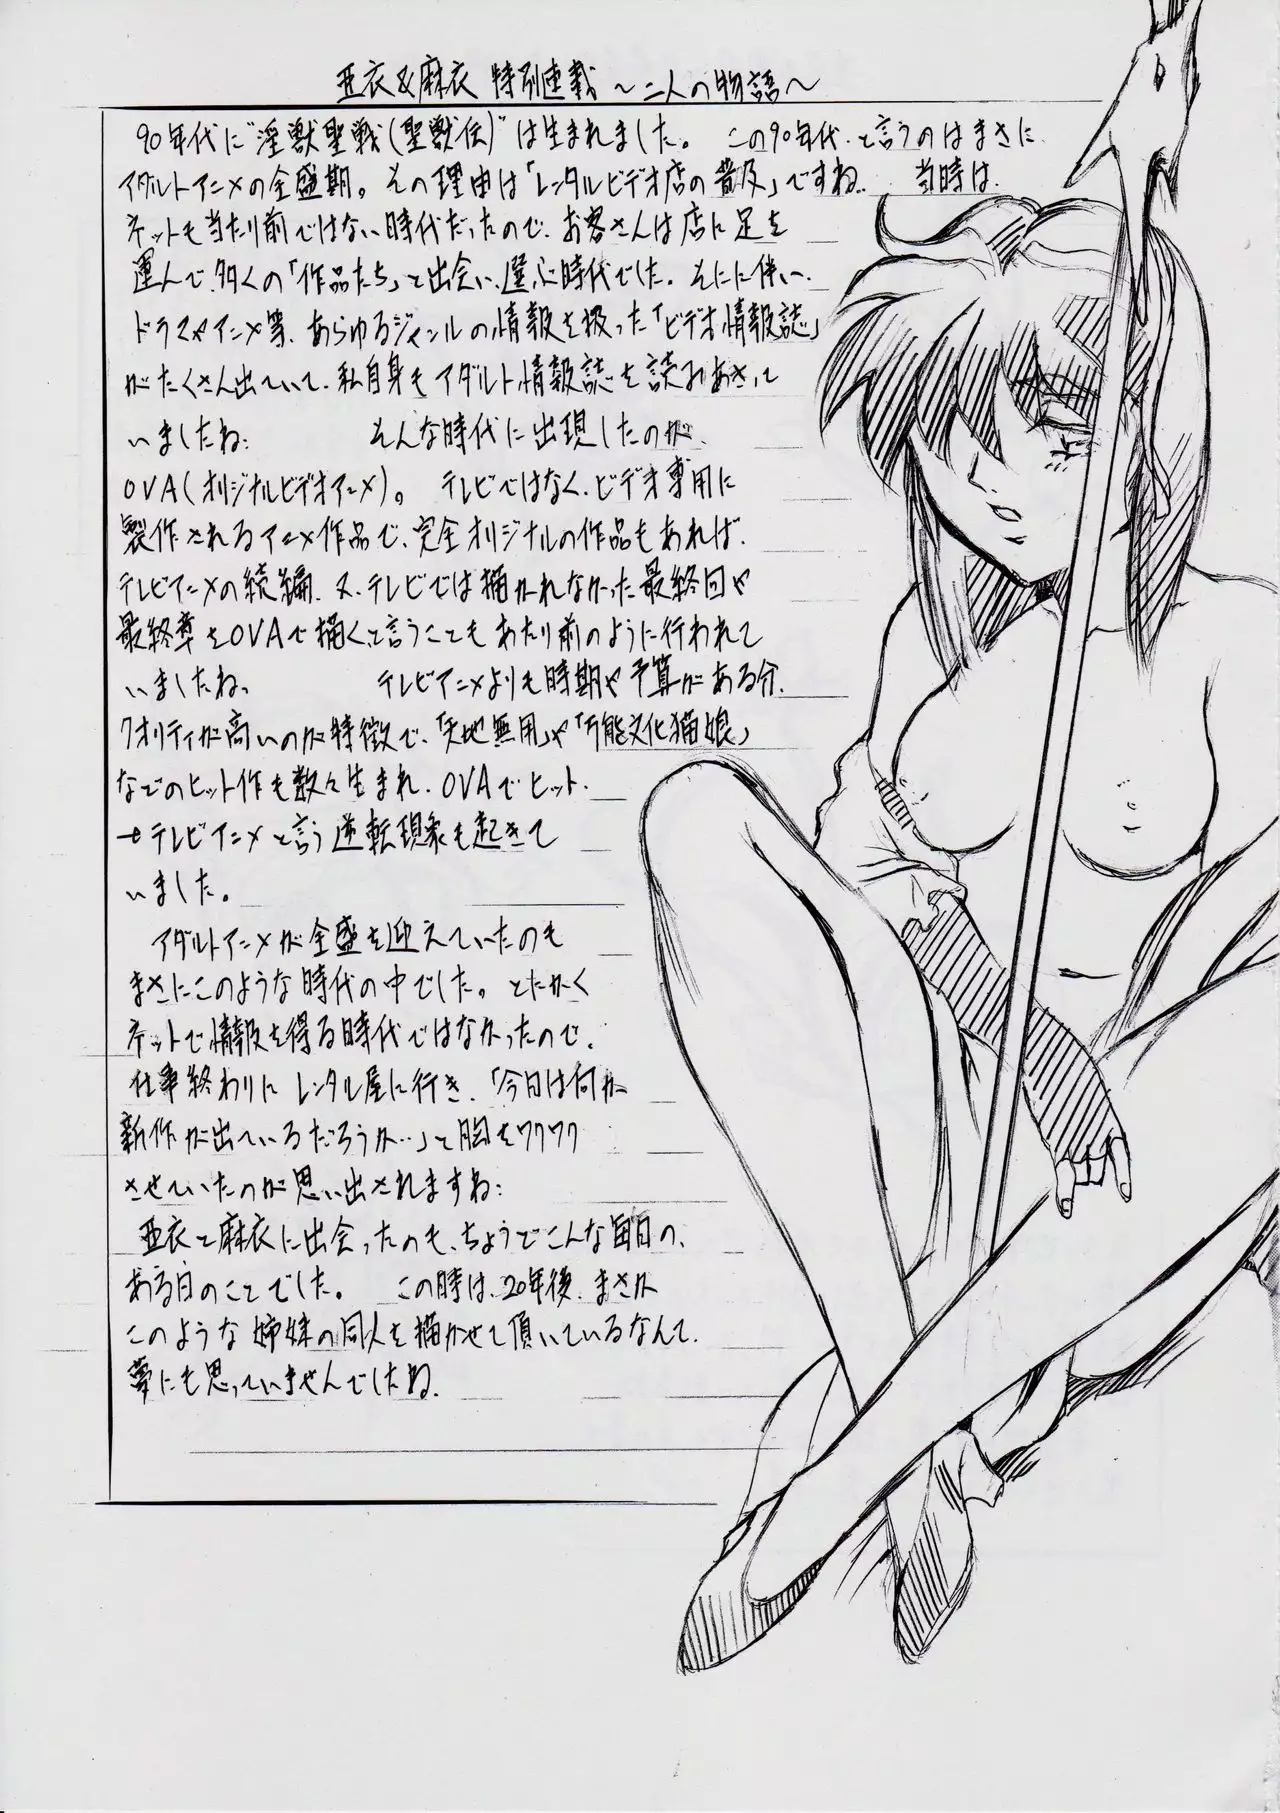 亜衣&麻衣 特別連載 ～二人の物語～
90年代に"淫獣聖戦(聖獣伝)"は生まれました。 この90年代、と言うのはまさに
アダルトアニメの全盛期。その理由は「レンタルビデオ店の普及」ですね。 当時は
ネットも当たり前ではない時代だったので、お客さんは店に足を
運んで、多くの「作品たち」と出会い、選ぶ時代でした。それに伴い、
ドラマやアニメ等、あらゆるジャンルの情報を扱った「ビデオ情報誌」
がたくさん出ていて、私自身もアダルト情報誌を読みあさって
いましたね。 そんな時代に出現したのが、
OVA(オリジナルビデオアニメ)。 テレビではなく、ビデオ専用に
製作されるアニメ作品で、完全オリジナルの作品もあれば、
テレビアニメの続編、又、テレビでは描かれなかった最終回や
最終章をOVAで描くと言うこともあたり前のように行われて
いましたね。 テレビアニメよりも時期や予算がある分、
クオリティが高いのが特徴で、「天地無用」や「万能文化猫娘」
などのヒット作も数々生まれ、OVAでヒット、
→テレビアニメと言う逆転現象も起きて
いました。
アダルトアニメが全盛を迎えていたのも
まさにこのような時代の中でした。とにかく
ネットで情報を得る時代ではなかったので、
仕事終わりにレンタル屋に行き、「今日は何か
新作が出ているだろうか…」と胸をワクワク
させていたのが思い出されますね。
亜衣と麻衣に出会ったのも、ちょうどこんな毎日の、
ある日のことでした。 この時は、20年後、まさか
このような姉妹の同人を描かせて頂いているなんて、
夢にも思っていませんでしたね。